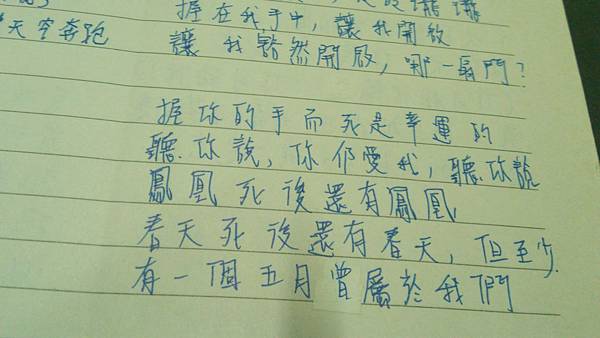 天空奔跑
握在我手中，讓我開啟
讓我豁然開啟，哪一扇門？
握你的手而死是幸運的
聽你說，你仍愛我，聽你說
鳳凰死後還有鳳凰
春天死後還有春天，但至少
有一個五月曾屬於我們